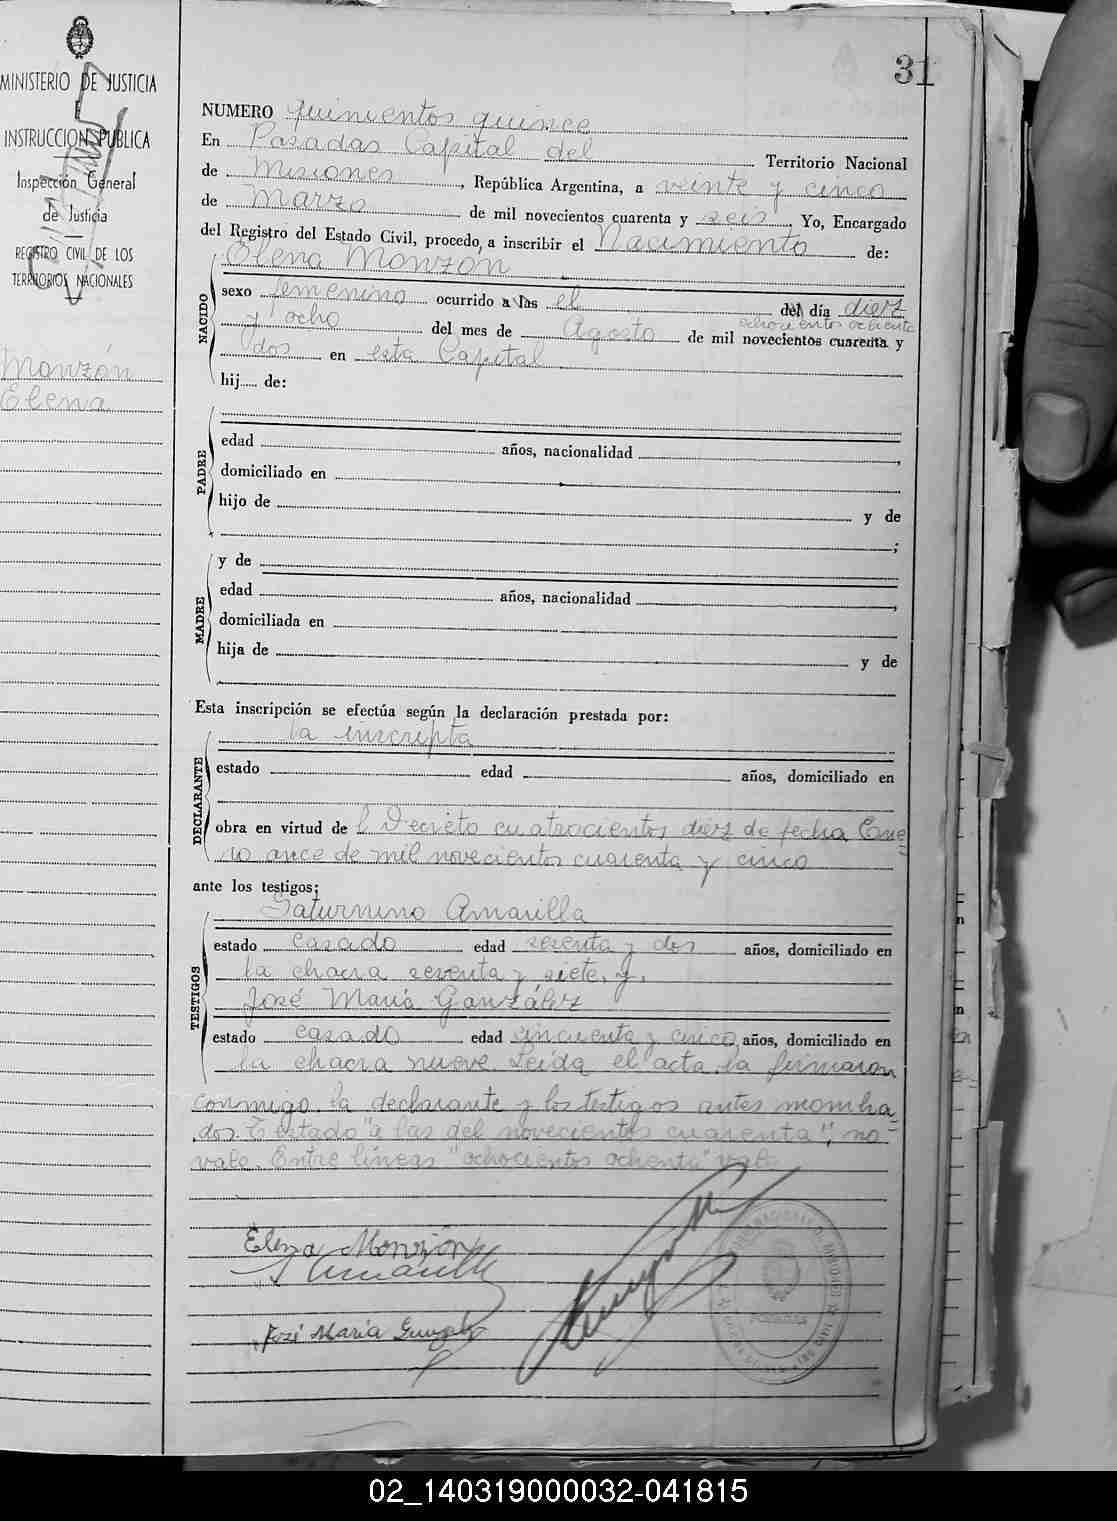 31
MINISTERIO DE JUSTICIA
E
INSTRUCCION PUBLICA
Inspección General
de Justicia
REGISTRO CIVIL DE LOS
TERRITORIOS NACIONALES
Monzón
Elena
NUMERO quinientos quince
En Posadas Capital del Territorio Nacional
de Misiones, República Argentina, a veinte y cinco
de Marzo de mil novecientos cuarenta y seis. Yo, Encargado
del Registro del Estado Civil, procedo a inscribir el Nacimiento de:
Elena Monzón
NACIDO
sexo femenino ocurrido a las el del día diez
ochocientos ochenta
y ocho del mes de Agosto de mil novecientos cuarenta y
dos en esta Capital
hij de:
PADRE
edad años, nacionalidad
domiciliado en
hijo de y de
;
MADRE
y de
edad años, nacionalidad
domiciliada en
hija de y de
Esta inscripción se efectúa según la declaración prestada por:
la inscripta
DECLARANTE
estado edad años, domiciliado en
obra en virtud de l Decreto cuatrocientos diez de fecha Ene
ro once de mil novecientos cuarenta y cinco
ante los testigos;
Saturnino Amarilla
TESTIGOS
estado casado edad sesenta y dos años, domiciliado en
la chacra sesenta y siete, y,
José María González
estado casado edad cincuenta y cinco años, domiciliado en
la chacra nueve. Leída el acta, la firmaron
conmigo, la declarante y los testigos antes mombra
dos. Testado "a las del novecientos cuarenta", no
vale. Entre líneas "ochocientos ochenta" vale
Elena Monzón
Amarilla
José María Gonzalez
POSADAS
02_140319000032-041815